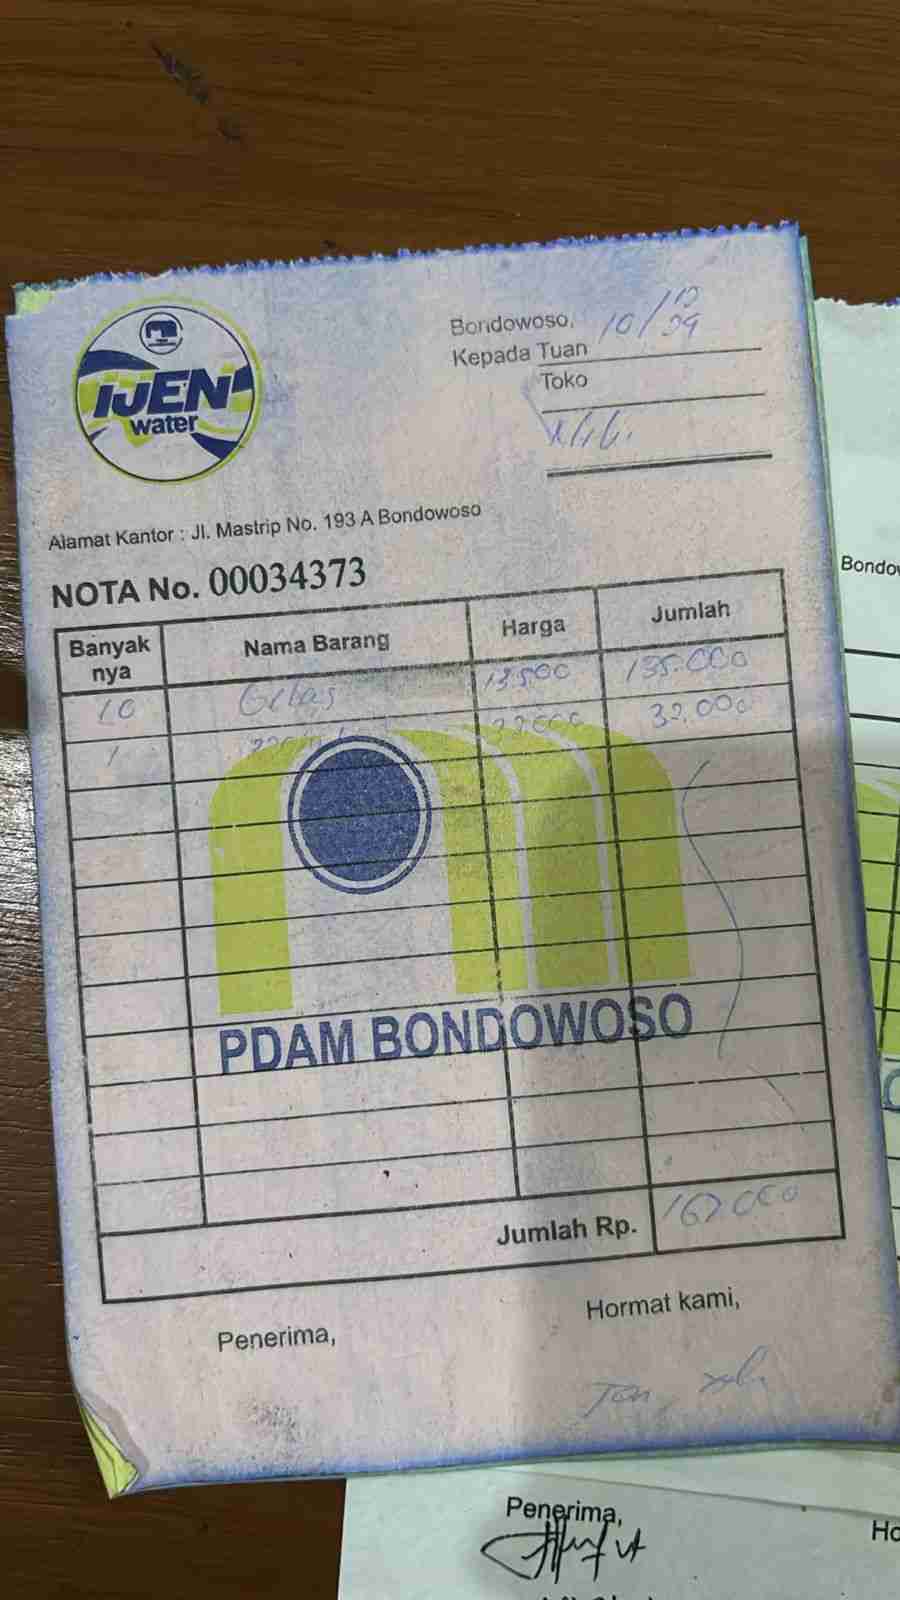 IJEN
water
Bondowoso, 10/
Kepada Tuan
Toko
Alamat Kantor : Jl. Mastrip No. 193 A Bondowoso
NOTA No. 00034373
Banyak nya Nama Barang Harga Jumlah
10 Gelas 13.500 135.000
1 32.000 32.000
PDAM BONDOWOSO
Jumlah Rp. 167.000
Penerima, Hormat kami,
Bondo
Penerima,
Ho